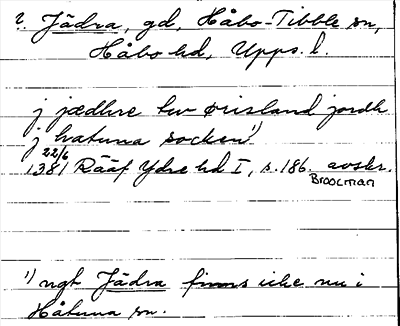 ?. Jädra, gd, Håbo-Tibble sn,
Håbo hd, Upps. l.
j jædhre tw ørisland jordh
j hatuna socken 1)
22/6
1381 Rääf Ydre hd I, s. 186. avskr.
Broocman
1) ngt Jädra finns icke nu i
Håtuna sn.